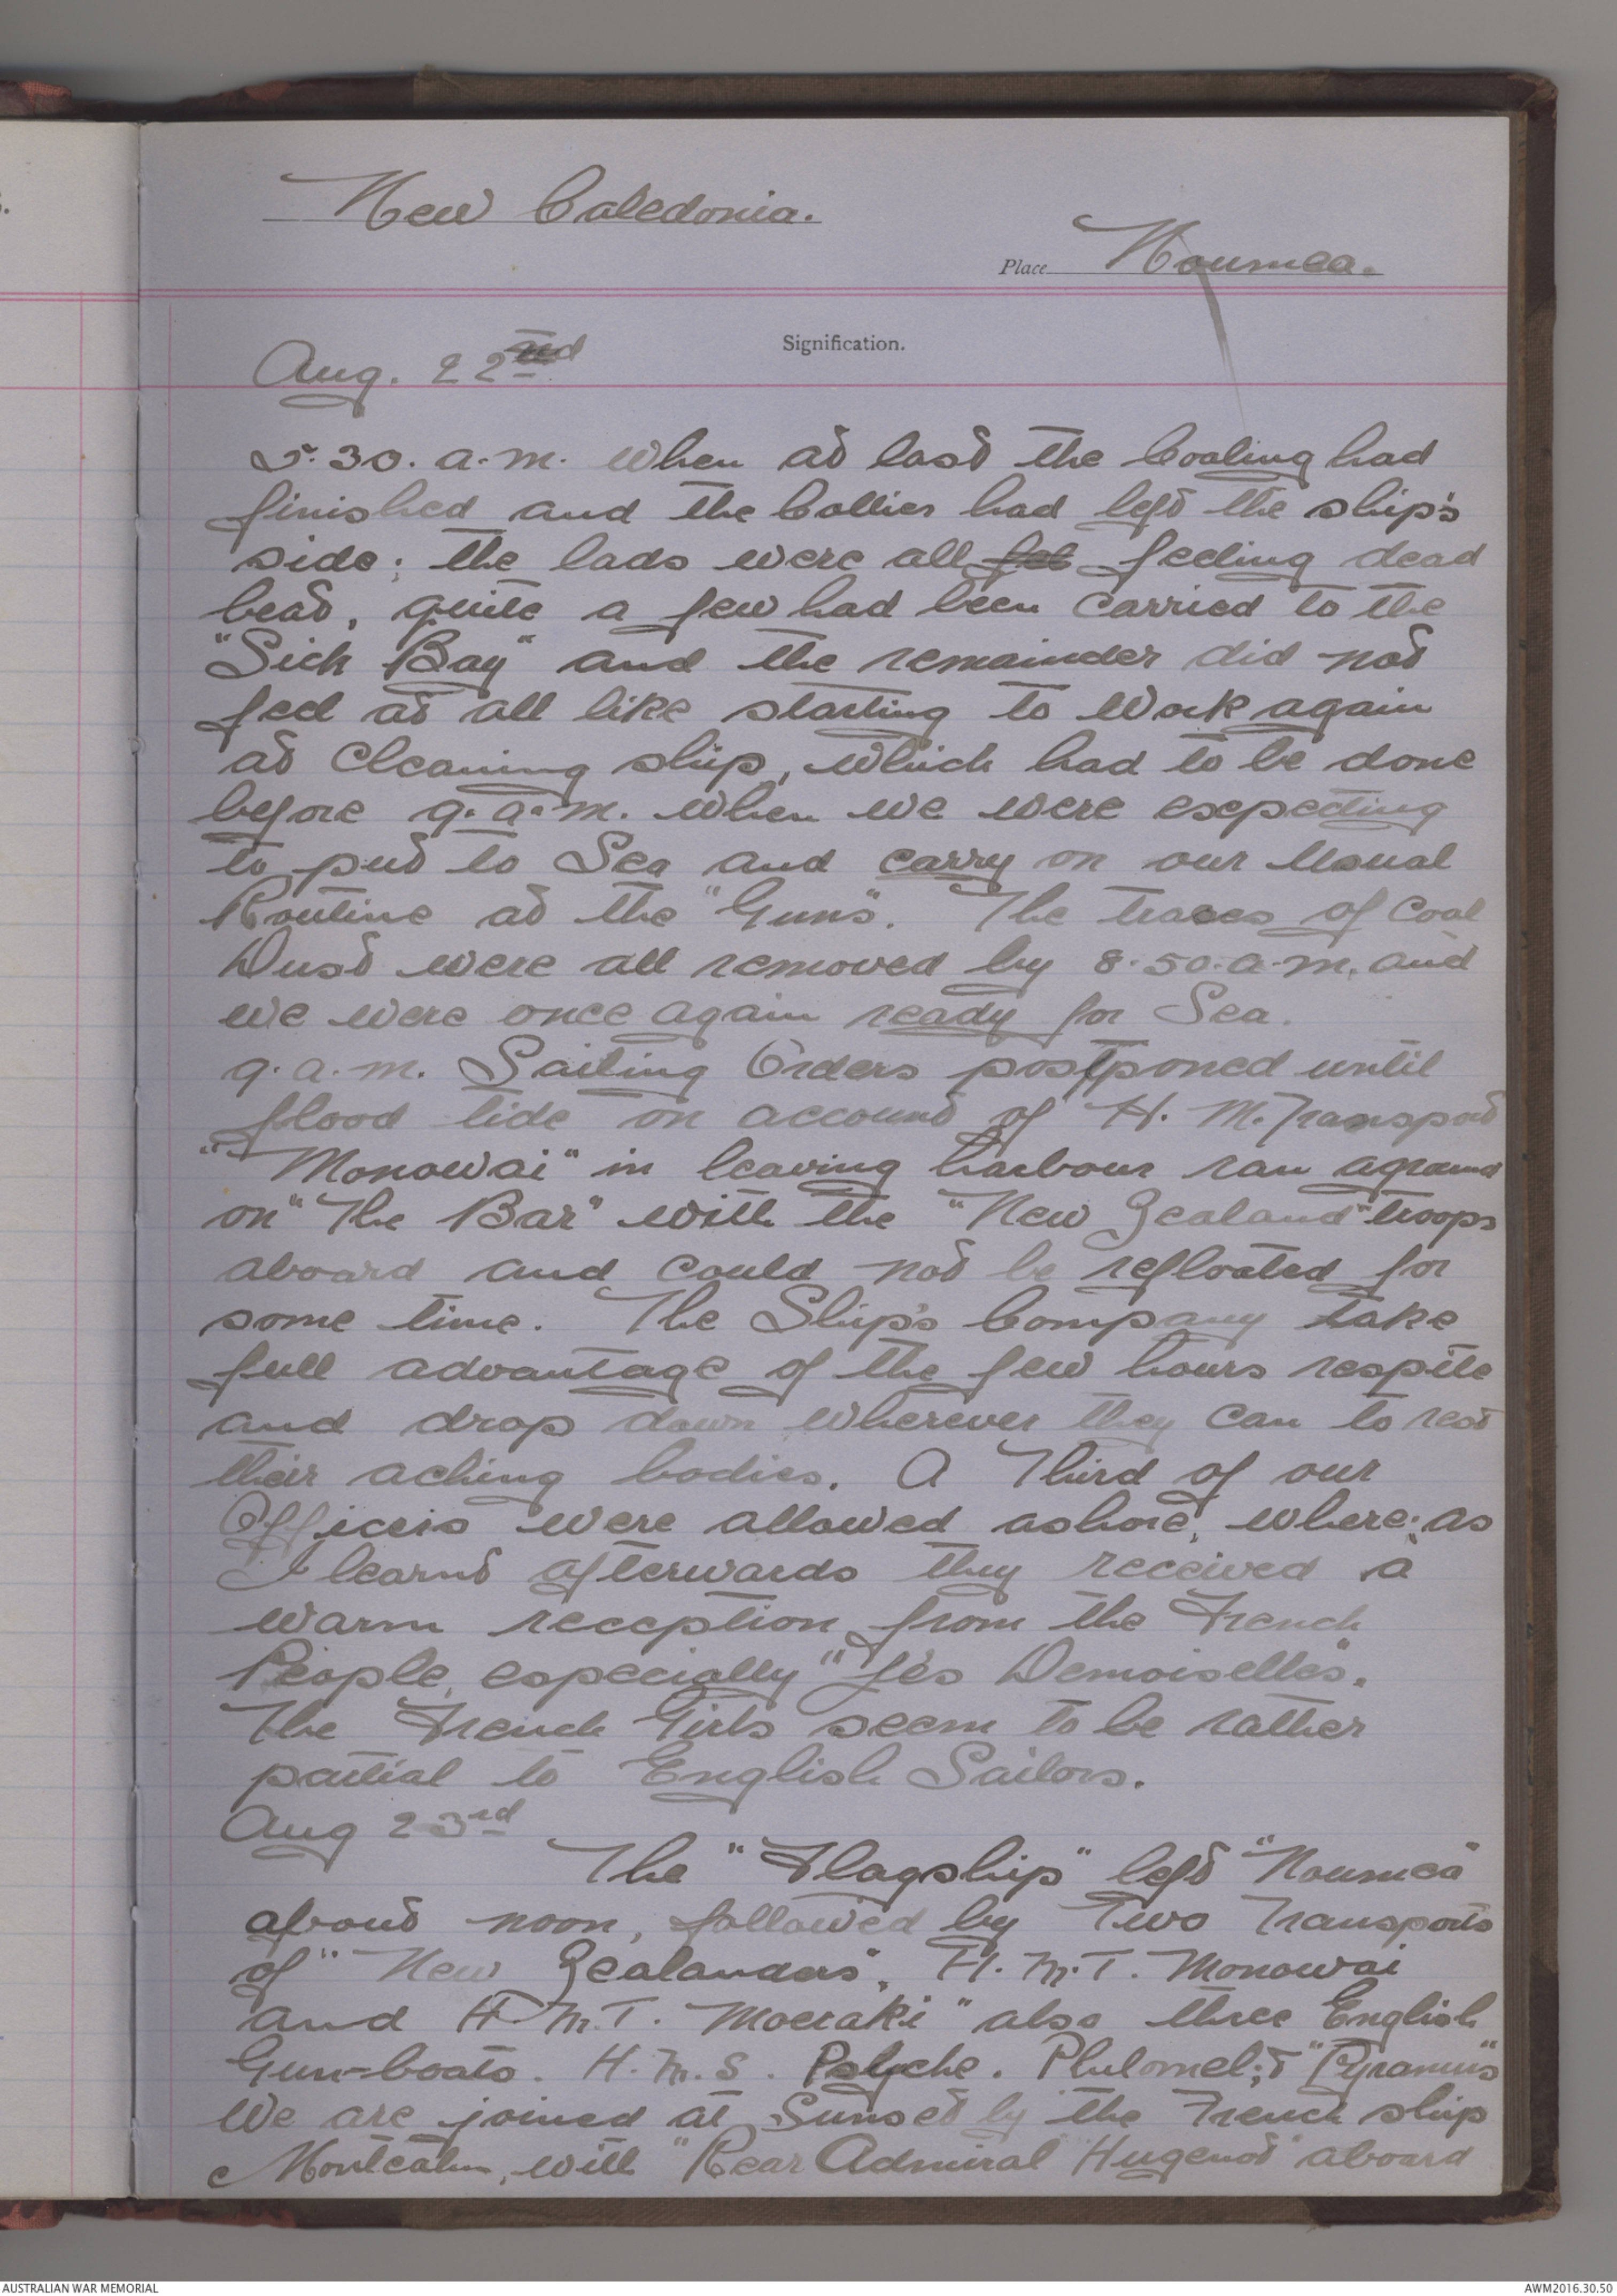 New Caledonia.
Place Noumea.
Signification.
Aug. 22nd
5.30. a.m. When at last the Coaling had
finished and the Collier had left the ship's
side; the lads were all feeling dead
beat, quite a few had been carried to the
"Sick Bay" and the remainder did not
feel at all like starting to Work again
at Cleaning ship, which had to be done
before 9. a.m. when we were expecting
to put to Sea and carry on our Usual
Routine at the "Guns". The traces of Coal
Dust were all removed by 8.50. a.m. and
we were once again ready for Sea.
9. a.m. Sailing Orders postponed until
flood tide on account of H. M. Transport
"Monowai" in leaving harbour ran aground
on "The Bar" with the "New Zealand" troops
aboard and could not be refloated for
some time. The Ship's Company take
full advantage of the few hours respite
and drop down wherever they can to rest
their aching bodies. A Third of our
Officers were allowed ashore, where; as
I learnt afterwards they received a
warm reception from the French
People, especially "Les Demoiselles".
The French Girls seem to be rather
partial to English Sailors.
Aug 23rd
The "Flagship" left "Noumea"
about noon, followed by Two Transports
of "New Zealanders", H. M. T. Monowai
and H. M. T. Moeraki" also three English
Gun-boats. H. M. S. Psyche. Philomel; & "Pyramus"
We are joined at Sunset by the French ship
Montcalm, with "Rear Admiral "Hugenot" aboard
AUSTRALIAN WAR MEMORIAL
AWM2016.30.50